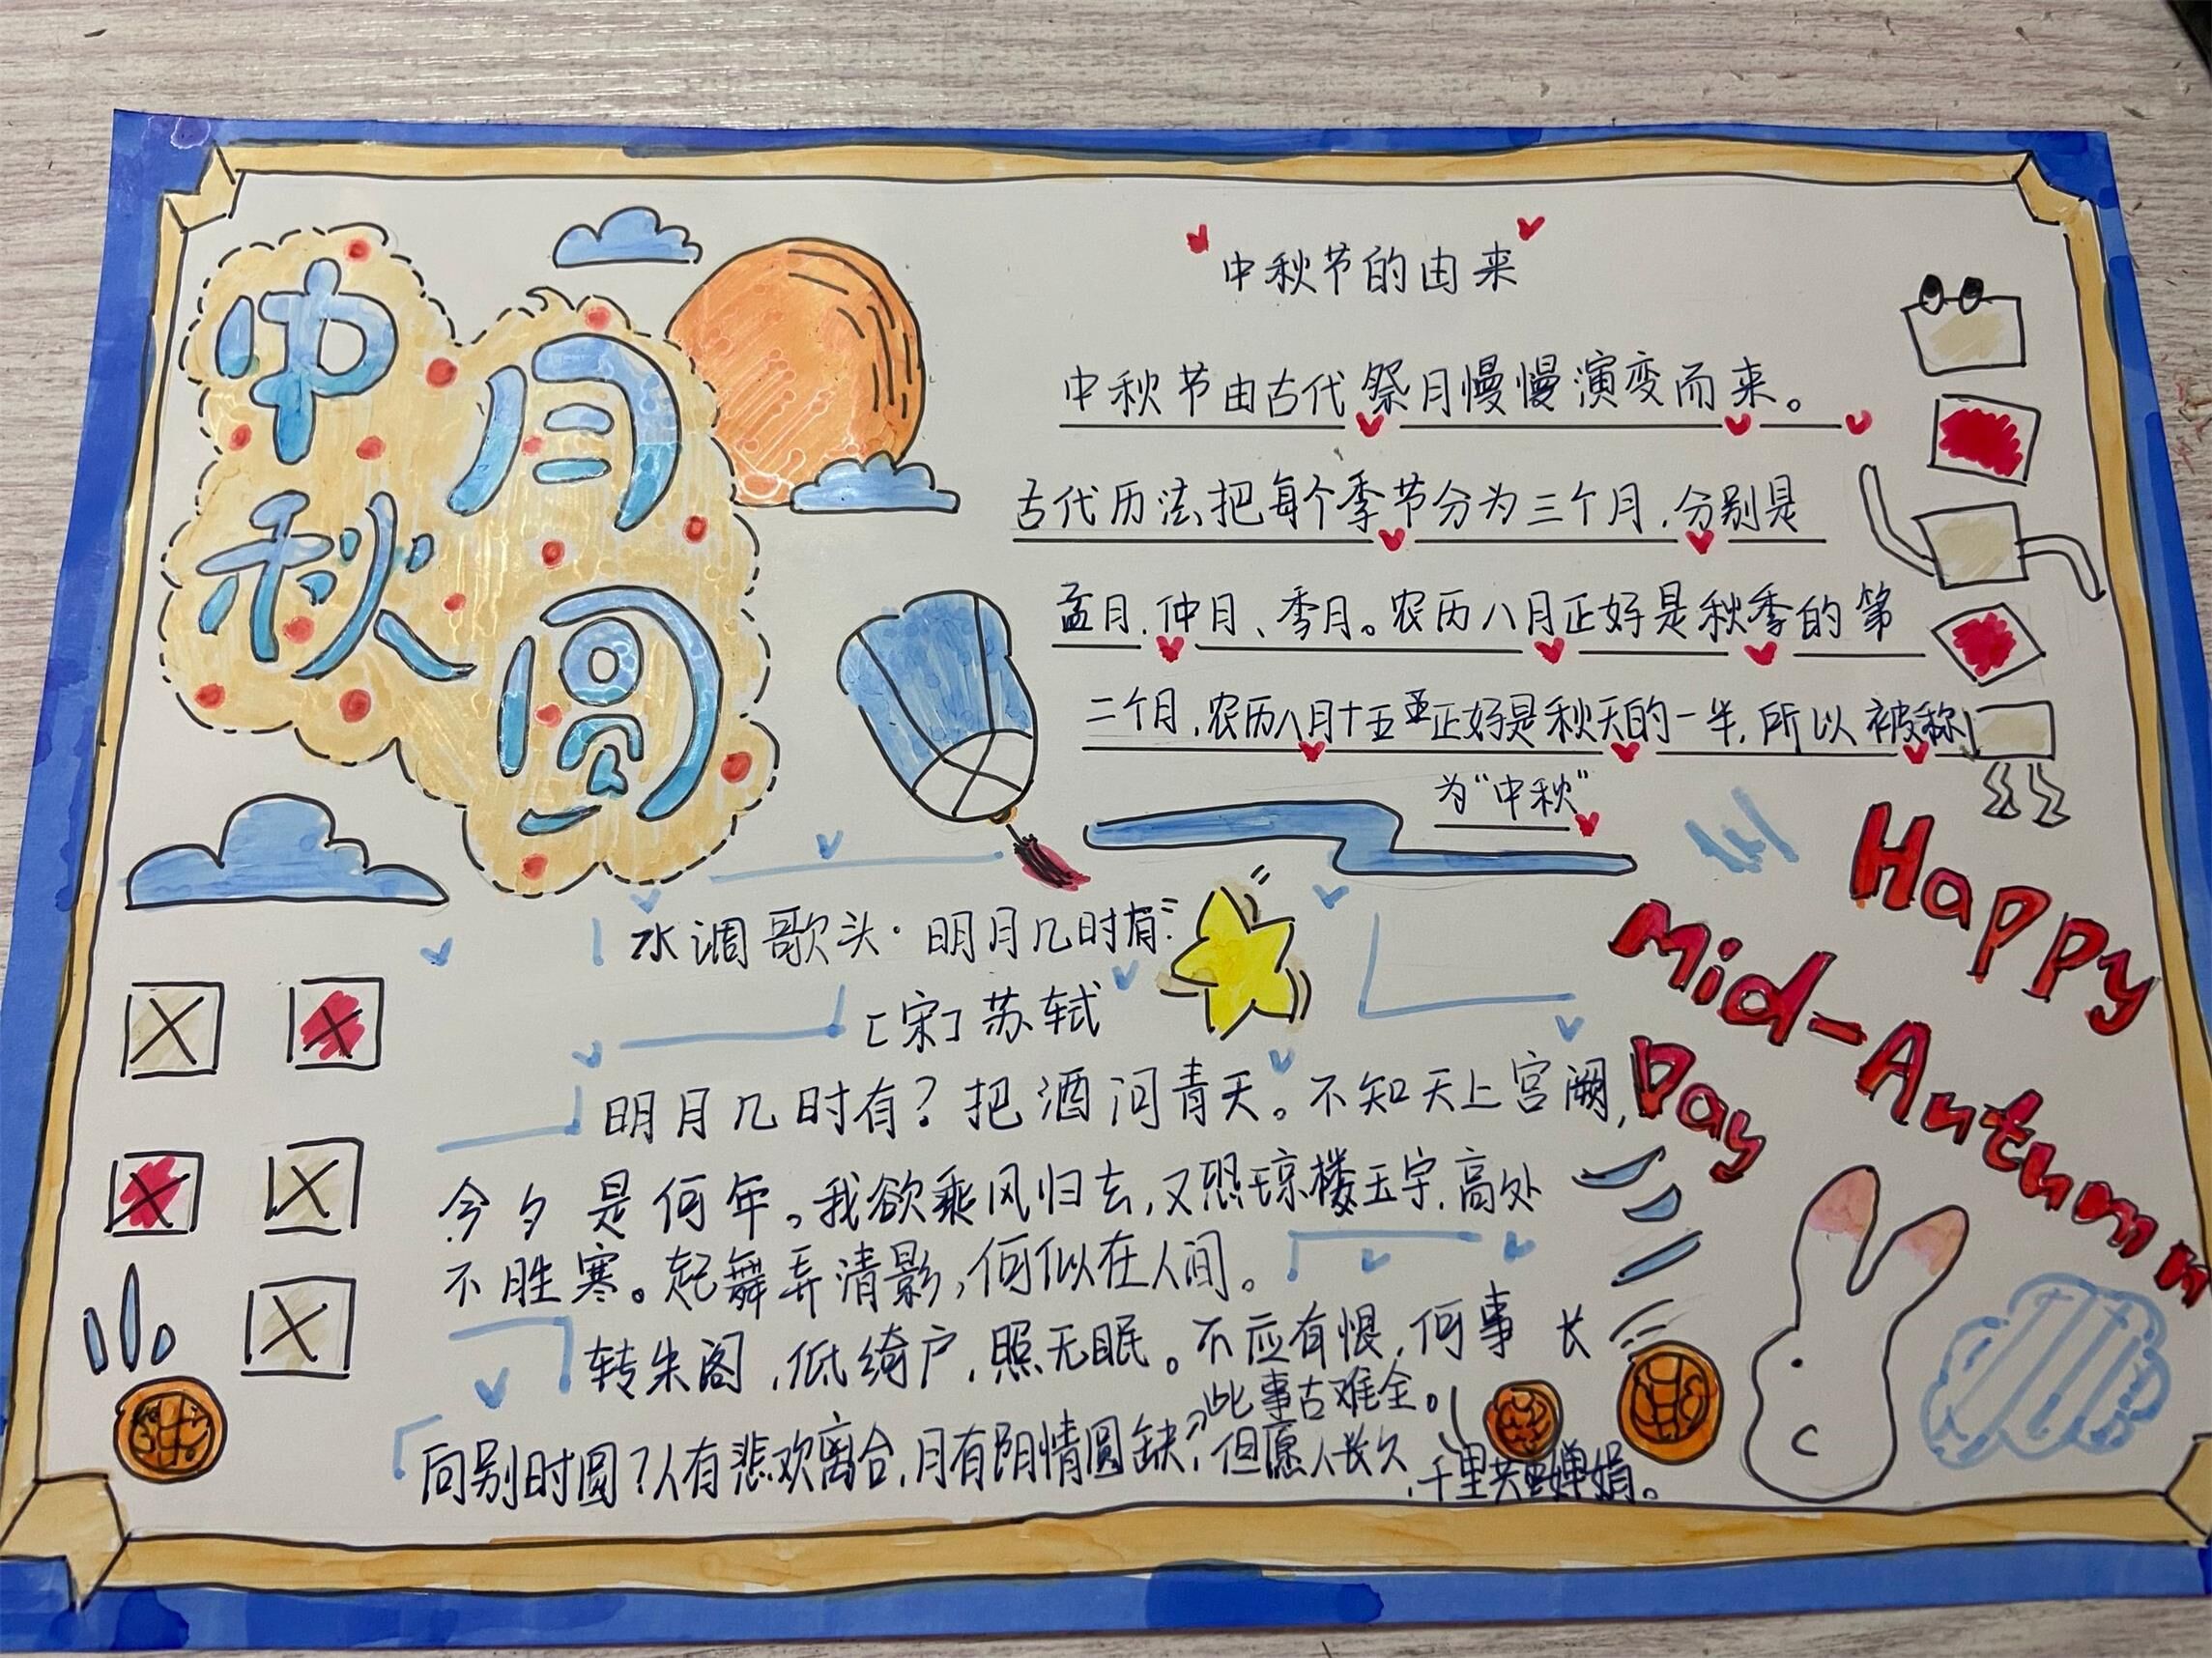 中秋
月圆
中秋节的由来
中秋节由古代祭月慢慢演变而来。
古代历法把每个季节分为三个月,分别是
孟月、仲月、季月。农历八月正好是秋季的第
二个月,农历八月十五正好是秋天的一半,所以被称
为“中秋”
Happy
Mid-Autumn
Day
水调歌头·明月几时有
[宋]苏轼
明月几时有?把酒问青天。不知天上宫阙,
今夕是何年。我欲乘风归去,又恐琼楼玉宇,高处
不胜寒。起舞弄清影,何似在人间。
转朱阁,低绮户,照无眠。不应有恨,何事长
向别时圆?人有悲欢离合,月有阴情圆缺,
此事古难全。
但愿人长久,千里共婵娟。